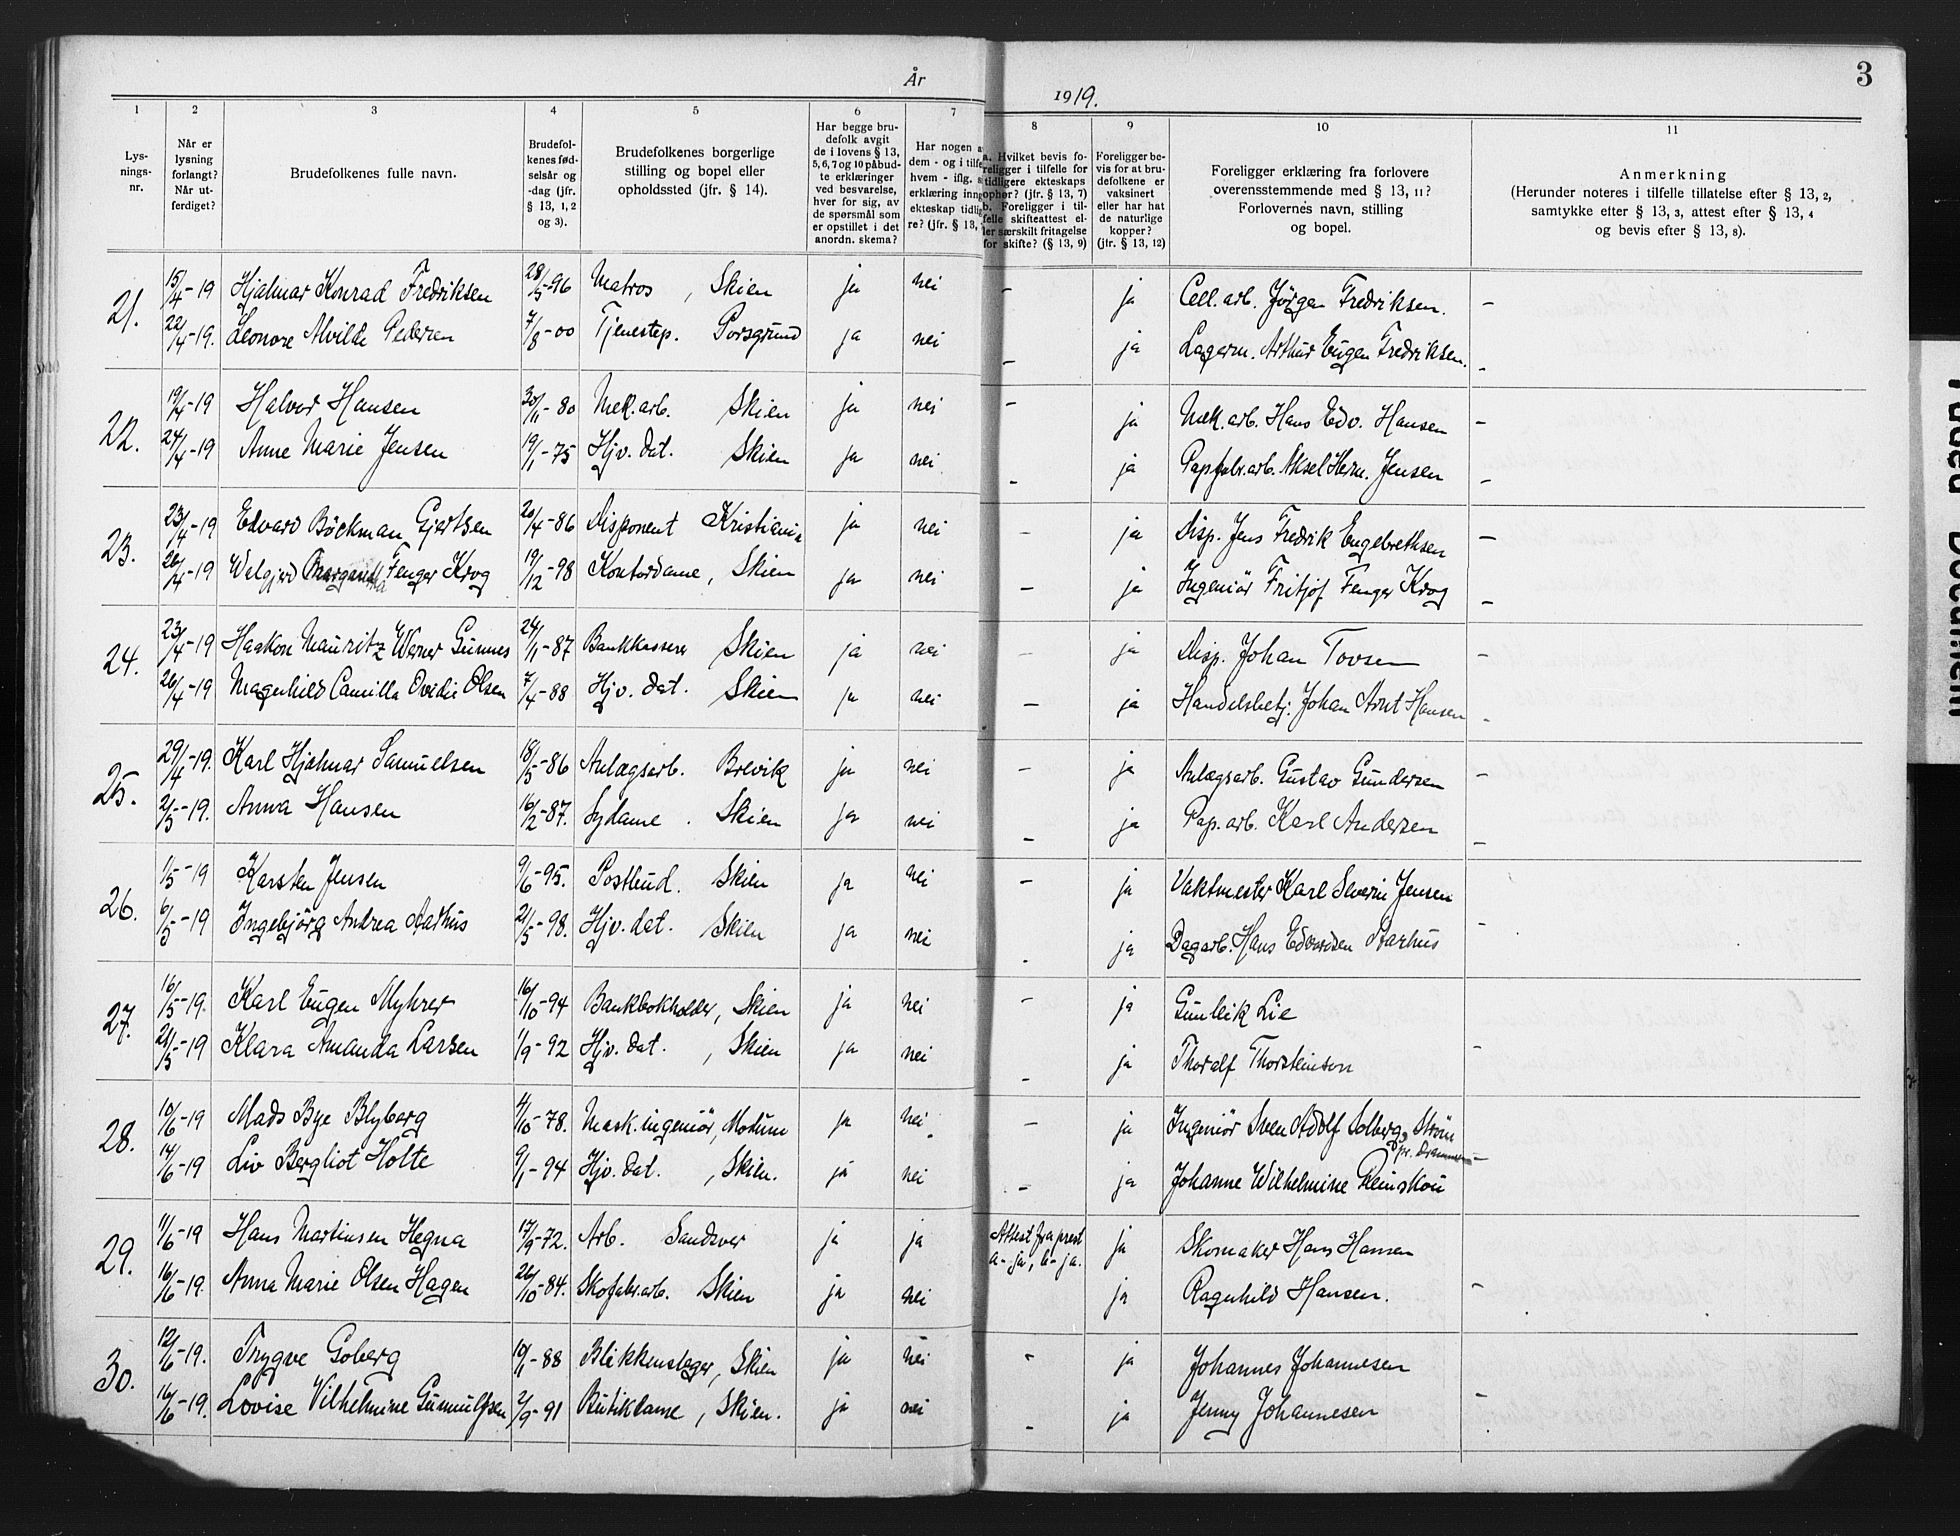 År 1919. 3
1 2 3 4 5 6 7 8 9 10 11
Lys-nings-nr.
Når er lysning forlangt? Når ut-ferdiget?
Brudefolkenes fulle navn.
Brudefol-kenes fød-selsår og -dag (jfr. § 13, 1, 2 og 3).
Brudefolkenes borgerlige stilling og bopel eller opholdssted (jfr. § 14).
Har begge bru-defolk avgit de i lovens § 13, 5, 6, 7 og 10 påbud-te erklæringer ved besvarelse, hver for sig, av de spørsmål som er opstillet i det anordn. skema?
Har nogen a dem - og i tilfe hvem - iflg. s erklæring inng ekteskap tidlig re? (jfr. § 13,
a. Hvilket bevis fo-religger i tilfelle for tidligere ekteskaps ophør? (jfr. § 13, 7) b. Foreligger i til-felle skifteattest el-ler særskilt fritagelse for skifte? (§ 13, 9)
Foreligger be-vis for at bru-defolkene er vaksinert eller har hat de naturlige kopper? (jfr. § 13, 12)
Foreligger erklæring fra forlovere overensstemmende med § 13, 11? Forlovernes navn, stilling og bopel.
Anmerkning (Herunder noteres i tilfelle tillatelse efter § 13, 2, samtykke efter § 13, 3, attest efter § 13, 4 og bevis efter § 13, 8).
21. 15/4-19 Hjalmar Konrad Fredriksen 28/5-96 Matros, Skien ja nei - ja Cell. arb. Jörgen Fredriksen. -
22/4-19. Leonore Alvilde Pedersen 7/8-00 Tjenestep. Porsgrund ja nei - ja Lagerm. Arthur Eugen Fredriksen. -
22. 19/4-19 Halvor Hansen 30/11-80 Mek. arb. Skien ja nei - ja Mek. arb. Hans Edv. Hansen -
24/4-19 Anne Marie Jensen 19/1-75 Hjv. dat. Skien ja nei - ja Papfabr. arb. Aksel Herm. Jensen -
23. 23/4-19 Edvard Böckman Gjertsen 20/4-86 Disponent Kristiania ja nei - ja Disp. Jens Fredrik Engebrethsen -
26/4-19 Fenger Krog 19/12-98 Kontordame, Skien ja nei - ja Ingeniör Fritjof Fenger Krog -
24. 23/4-19 Haakon Mauritz Werner Gunnes 24/11-87 Bankkasserer Skien ja nei - ja Disp. Johan Tovsen -
26/4-19 Magnhild Camilla Ovidie Olsen 7/4-88 Hjv. dat. Skien ja nei - ja Handelsbetj. Johan Arnt Hansen -
25. 29/4-19. Karl Hjalmar Samuelsen 18/5-86 Anlægsarb. Brevik ja nei - ja Anlægsarb. Gustav Gundersen -
2/5-19. Anna Hansen 16/2-87. Sydame. Skien ja nei - ja Pap. arb. Karl Andersen -
26. 1/5-19 Karsten Jensen 9/6-95. Postbud. Skien ja nei - ja Vaktmester Karl Severin Jensen
6/5-19 Ingebjörg Andrea Aarhus 21/5-98. Hjv. dat. Skien ja nei - ja Dagarb. Hans Edvardsen Aarhus -
27. 16/5-19. Karl Eugen Myhrer 16/10-94 Bankbokholder, Skien ja nei - ja Gunleik Lie
21/5-19 Klara Amanda Larsen 1/9-92 Hjv. dat., Skien ja nei - ja Thoralf Thorsteinson -
28. 10/6-19 Mads Bye Blyberg 4/10-78. Mask. ingeniör, Modum ja nei. - ja Ingeniör Sven Adolf Solberg, Ström pr. Drammen -
14/6-19 Liv Bergliot Holte 9/1-94 Hjv. dat., Skien. ja nei - ja Johanne Wilhelmine Reinskou
29. 11/6-19 Hans Martinsen Hegna 17/9-72. Arb. Sandsver ja ja Attest fra prest a-ja, b-ja. ja Skomaker Hans Hansen
16/6-19. Anna Marie Olsen Hagen 26/10-84. Skofabr. arb. Skien ja nei ja Ragnhild Hansen. -
30. 12/6-19. Trygve Goberg 10/1-88 Blikkenslager, Skien ja nei - ja Johannes Johannesen
16/6-19. Lovise Vilhelmine Gunnulfsen 2/9-91 Butikdame, Skien. ja nei - ja Jenny Johannesen -